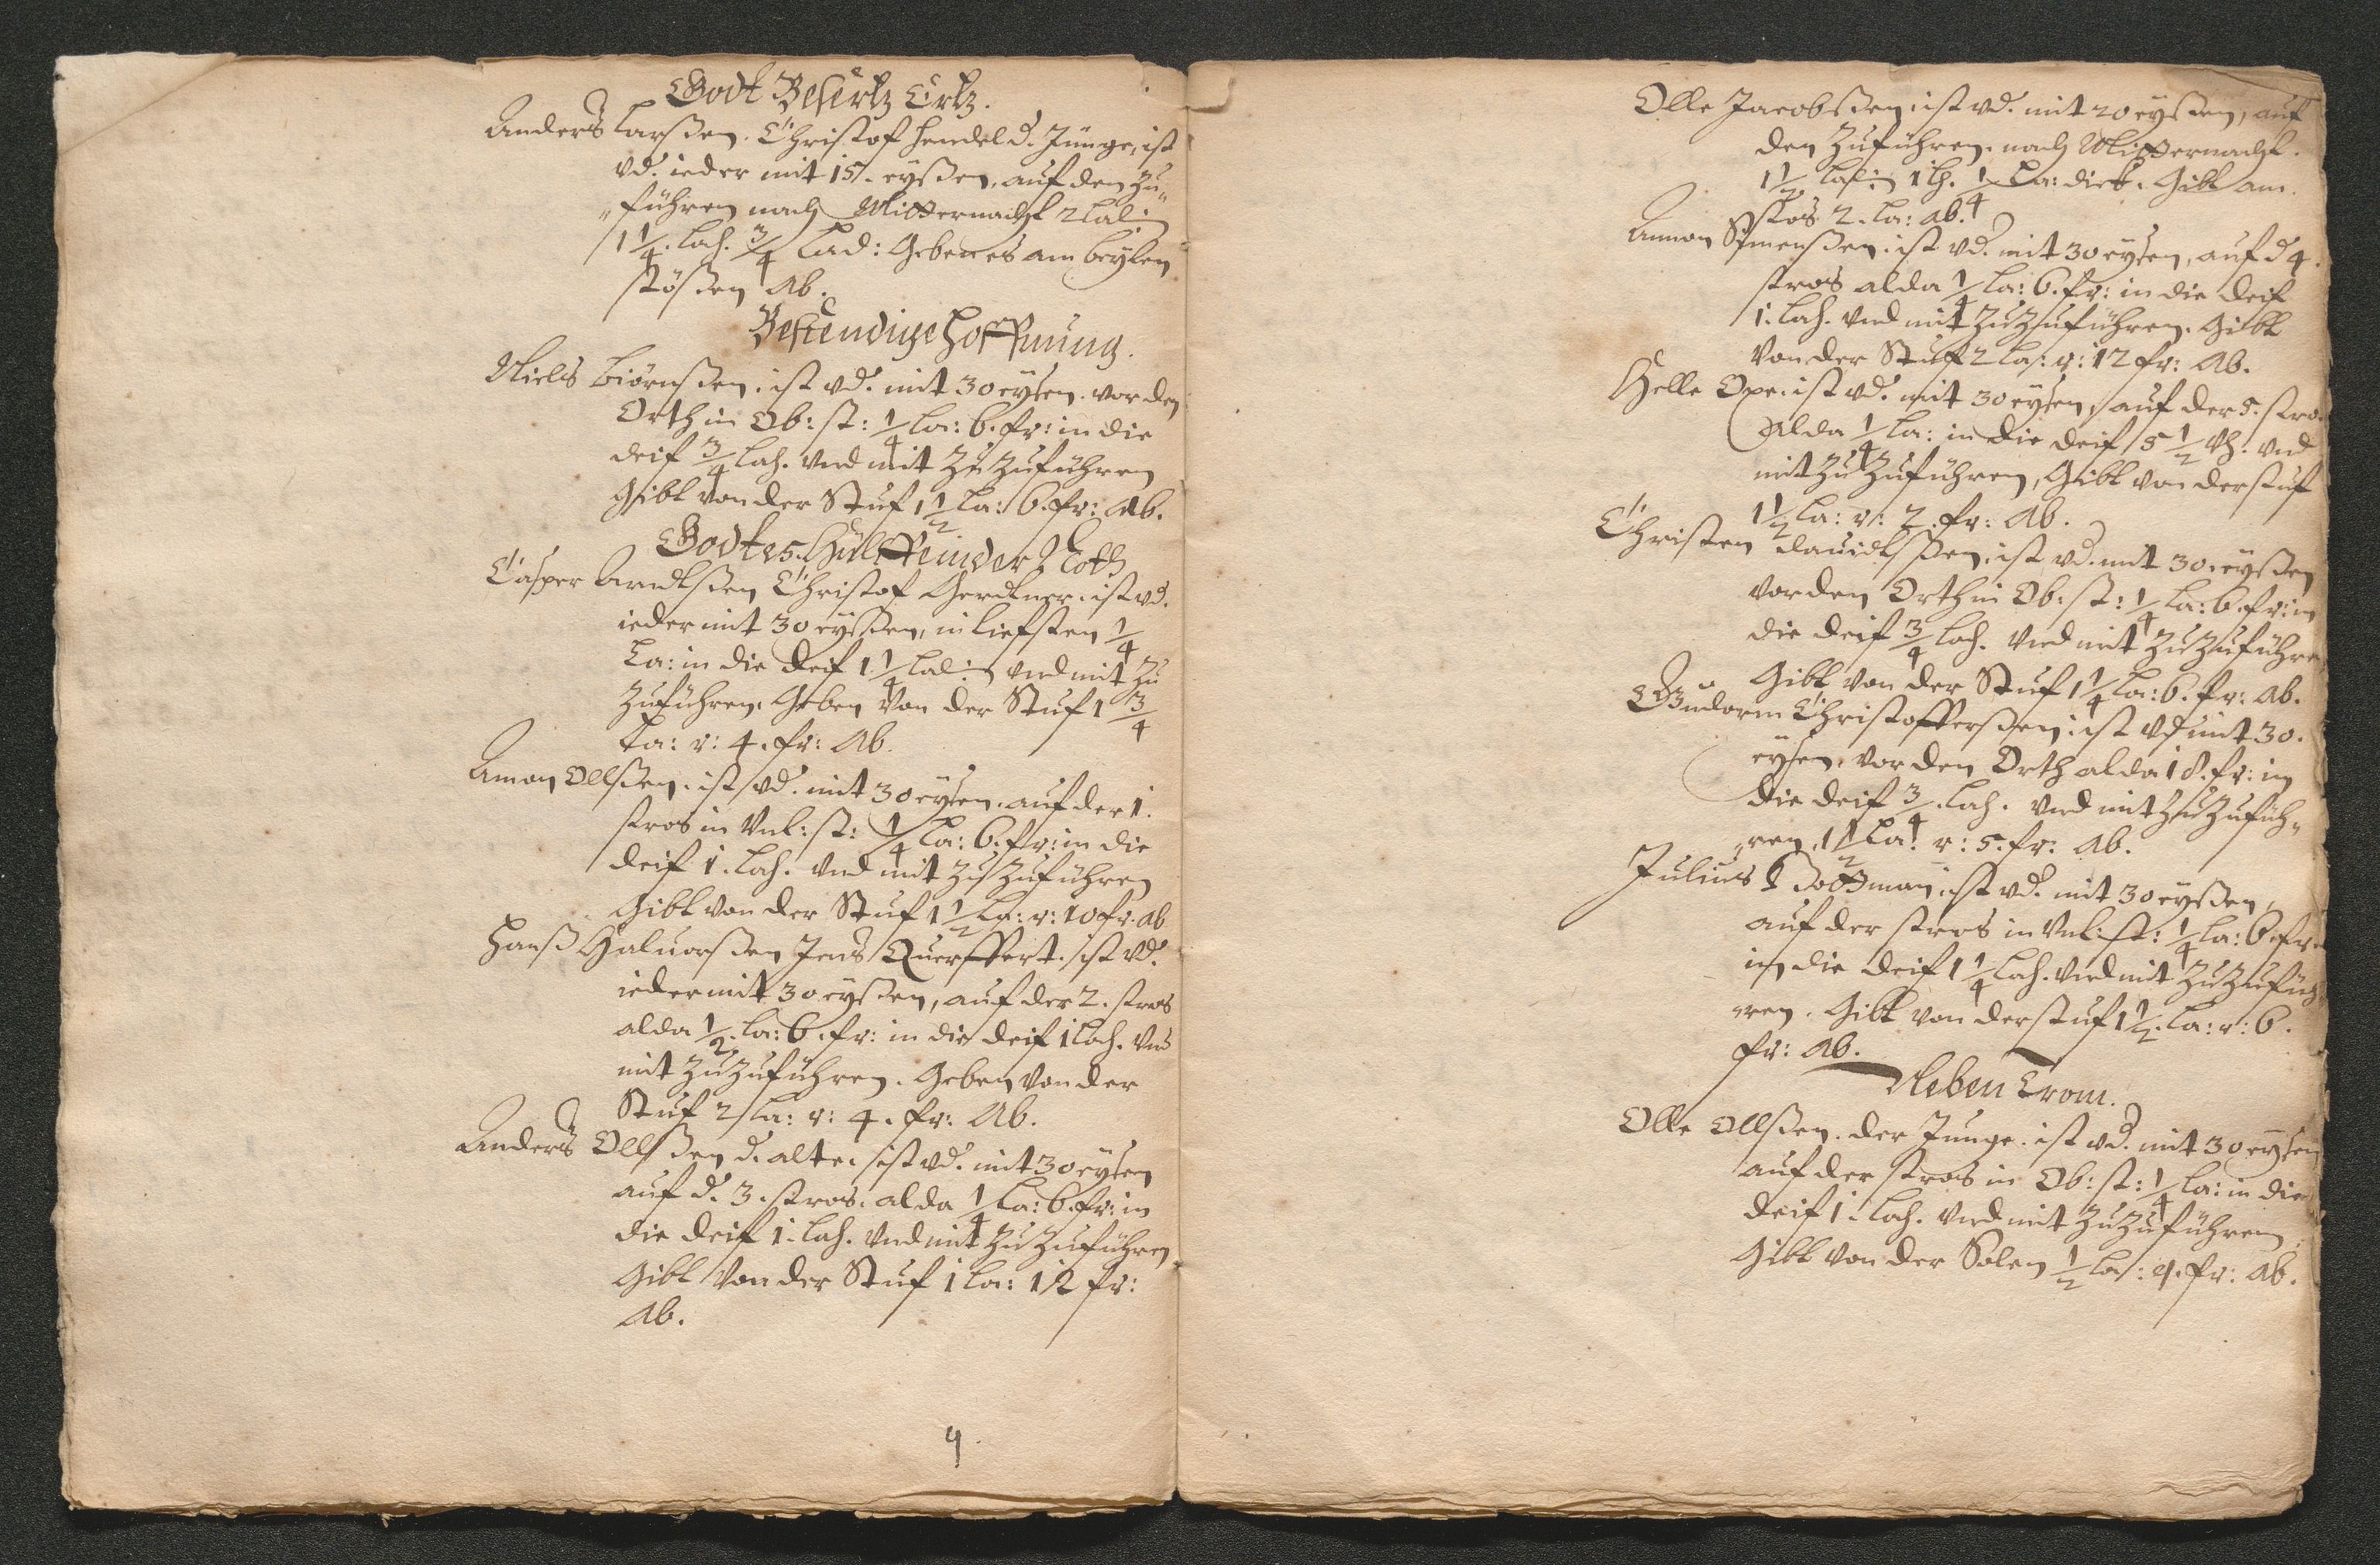 Godt Beschertz Ertz.
Anders Larßen. Christof Hendel d. Junge, ist
vd. ieder mit 15. eyßen, auf den Zu„
„führen nach Mitternacht 2 Lah:
1 1/4. Lach. 3/4 Lad: Geben es am beyken
stößen Ab.
Bestendige Hoffnung.
Niels Biörnßen. ist vd. mit 30 eysen. vor den
Orth in Ob: st: 1/4 La: 6. fr: in die
deif 3/4 Lach. vnd mit Zu Zuführen
Gibt von der Stuf 1 1/2 La: 6. fr: Ab.
Godtes. Hülffe in der Noth
Casper Arndtßen Christof Gerdtner. ist vd.
ieder mit 30 eyßen, in tiefsten 1/4
La: in die deif 1 1/4 Lah: vnd mit Zu
Zuführen. Geben Von der Stuf 1 3/4
La: v: 4. fr: Ab.
Amon Ollßen. ist vd. mit 30 eysen. auf der 1.
stros in Vnt: st: 1/4 La: 6. fr: in die
deif 1. Lach. vnd mit Zu Zuführen
Gibt von der Stuf 1 1/2 La: v: 10 fr: ab
Hanß Haluorßen Jens Querffert. ist vd.
ieder mit 30 eyßen, auf der 2. stros
alda 1/2. La: 6. fr: in die deif 1 Lach. vnd
mit Zu Zuführen. Geben von der
Stuf 2 La: v: 4. fr: Ab.
Anders Ollßen d. alte. ist vd. mit 30 eysen
auf d. 3. stros. alda 1/4 La: 6. fr: in
die deif 1. Lach. vnd mit Zu Zuführen
Gibt von der Stuf 1 La: 12 fr:
Ab.
9
Olle Jacobßen. ist vd. mit 20 eyßen, auf
den Zuführen. nach Mitternacht.
1 1/2 Lah: 1 Lh. 1/4 La: dick. Gibt am
Stos 2. La: ab.
Ammon Simenßen. ist vd. mit 30 eysen, auf d 4.
stros alda 1/4 La: 6. fr: in die deif
1. Lach. vnd mit Zu Zuführen. Gibt
Von der Stuf 2 La: v: 12 fr: Ab.
Helle Oxe. ist vd. mit 30 eysen, auf der 5. stro.
Alda 1/4 La: in die deif 5 1/2 vh. vnd
mit Zu Zuführen, Gibt von der stuf
1 1/2 La: v: 2. fr: Ab.
Christen dauidtßen. ist vd. mit 30. eyßen
vor den Orth in Ob: st: 1/4 La: 6. fr: in
die deif 3/4 Lach. vnd mit Zu Zuführen
Gibt von der Stuf 1 1/4 La: 6. fr: ab.
Gudorm Christofferßen. ist vd mit 30.
eysen, vor den Orth alda 18. fr: in
die deif 3/4. Lach. vnd mit Zu Zufüh„
„ren. 1 1/2 La: v: 5. fr: Ab.
Julius Bottman. ist vd. mit 30 eyßen,
auf der stros in Vnt: st: 1/4 La: 6. fr:
in die deif 1 1/4 Lach. vnd mit Zu Zufüh
„ren. Gibt von der stuf 1 1/2. La: v: 6.
fr: Ab.
Neben Crom.
Olle Ollßen. der Junge. ist vd. mit 30 eysen
auf der stros in Ob: st: 1/4 La: in die
deif 1. Lach. vnd mit Zu Zuführen
Gibt von der Solen 1/2 La: 9. fr: Ab.